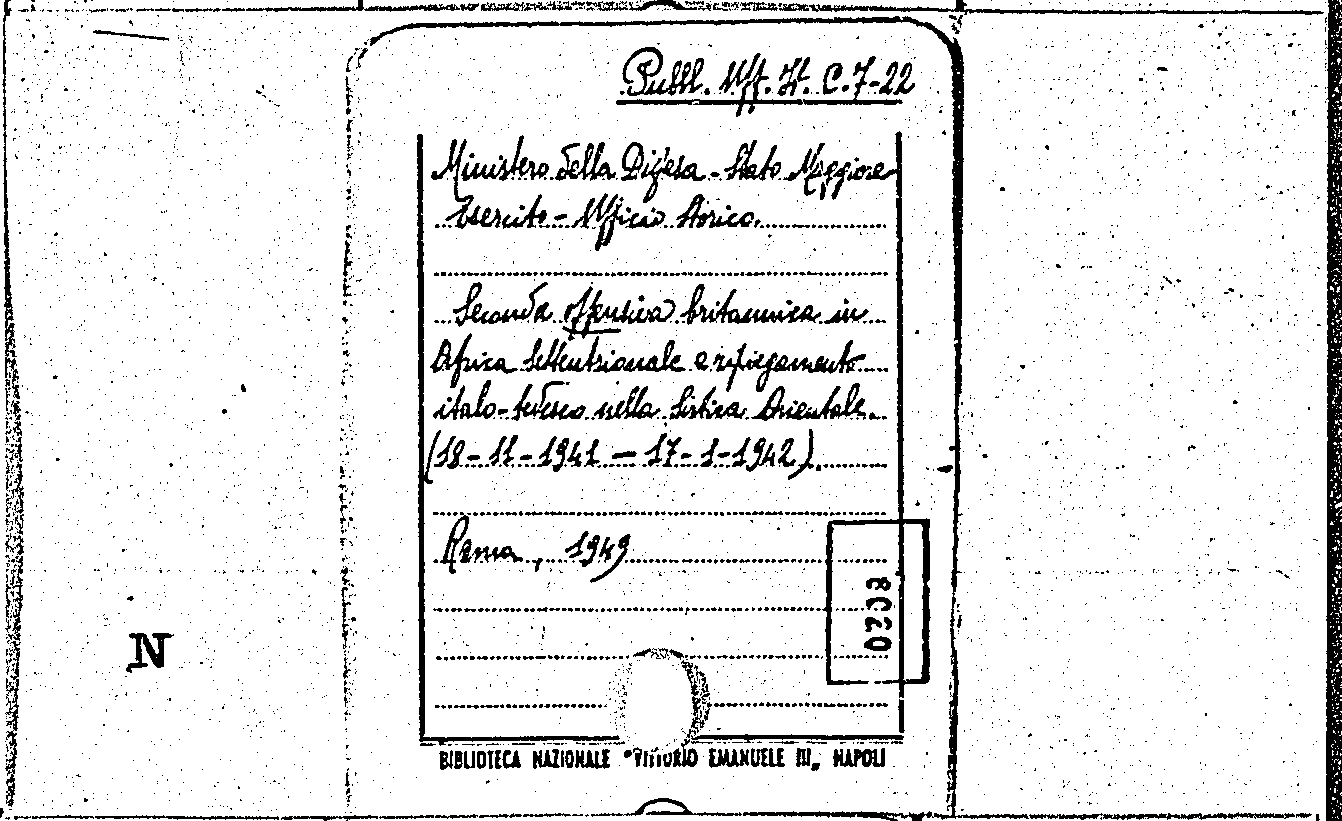 Pubbl. Uff. It. C.7-22
Ministero della Difesa - Stato Maggiore
Esercito - Ufficio Storico.
Seconda offensiva britannica in
Africa Settentrionale e ripiegamento
italo-tedesco nella Sirtica Orientale.
(18-11-1941 — 17-1-1942).
Roma, 1949
8020
N
BIBLIOTECA NAZIONALE "VITTORIO EMANUELE III„ NAPOLI